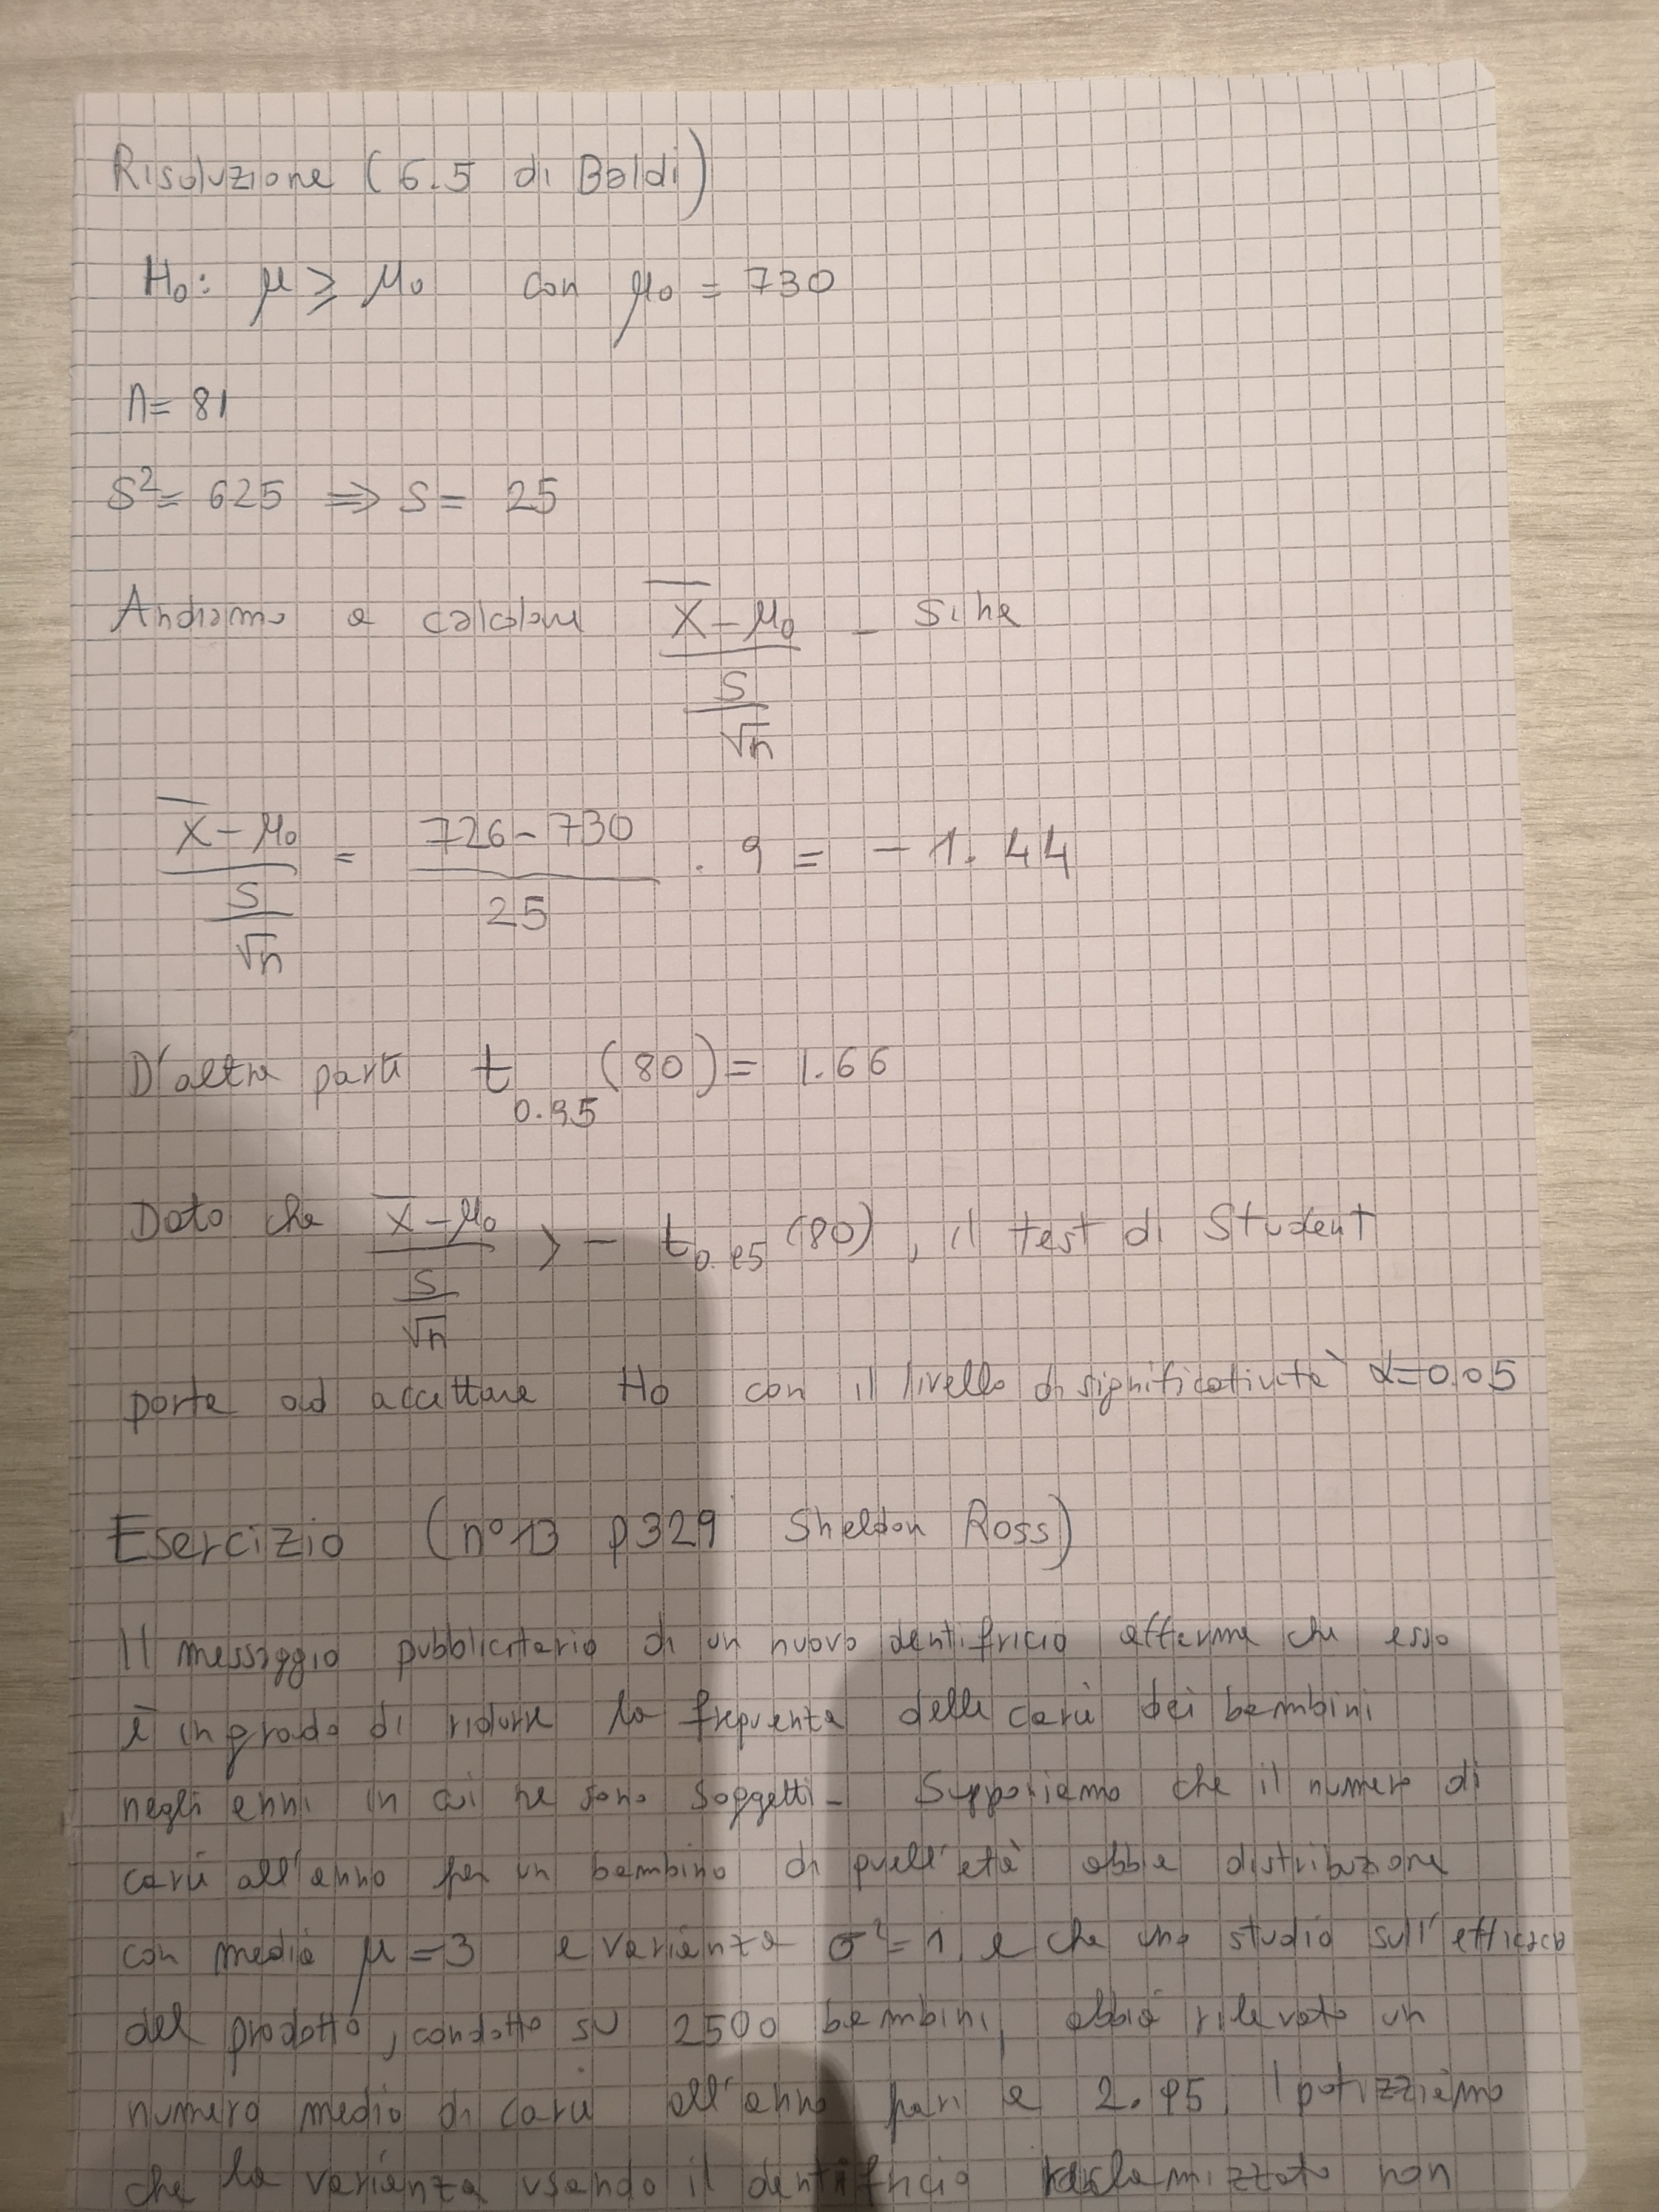 Risoluzione (6.5 di Baldi)
H₀: μ ≥ μ₀ con μ₀ = 730
n = 81
S² = 625 ⟹ S = 25
Andiamo a calcolare (X̄ - μ₀) / (S/√n). Si ha
(X̄ - μ₀) / (S/√n) = (726 - 730) / 25 · 9 = -1.44
D'altra parte t₀.₉₅ (80) = 1.66
Dato che (X̄ - μ₀) / (S/√n) > - t₀.₉₅ (80), il test di Student
porta ad accettare H₀ con il livello di significatività α=0.05
Esercizio (n°13 p329 Sheldon Ross)
Il messaggio pubblicitario di un nuovo dentifricio afferma che esso
è in grado di ridurre la frequenza delle carie dei bambini
negli anni in cui ne sono soggetti. Supponiamo che il numero di
carie all'anno per un bambino di quell'età abbia distribuzione
con media μ = 3 e varianza σ² = 1 e che uno studio sull'efficacia
del prodotto, condotto su 2500 bambini, abbia rilevato un
numero medio di carie all'anno pari a 2.95. Ipotizziamo
che la varianza usando il dentifricio reclamizzato non